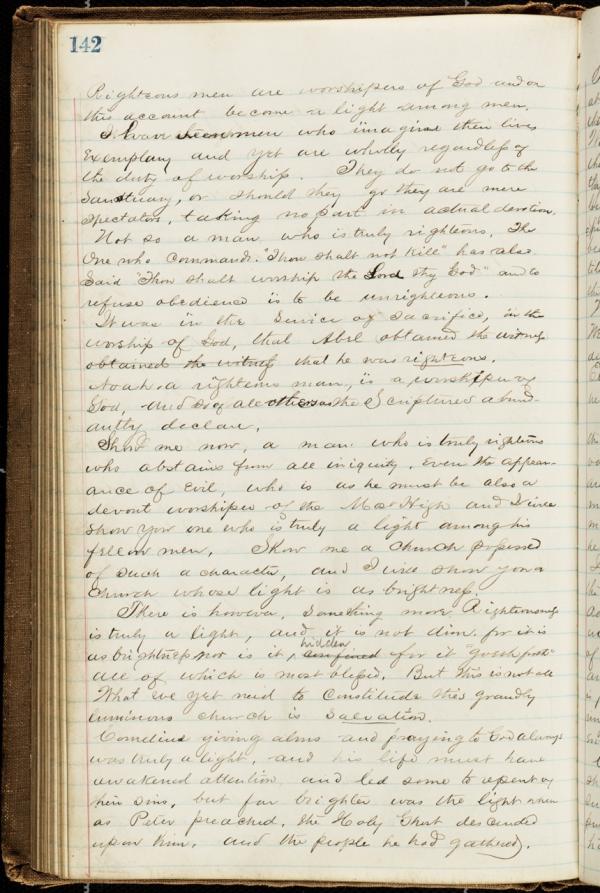 142
Righteous men are worshipers of God and on
this account become a light among men.
I have seen men who imagine their lives
Exemplary and yet are wholly regardless of
the duty of worship. They do not go to the
Sanctuary, or should they go they are mere
Spectators, taking no part in actual devotion.
Not so a man who is truly righteous. The
One who commands "Thou shalt not Kill" has also
Said "Thou shalt worship the Lord thy God" and to
refuse obedience is to be unrighteous.
It was in the Service of Sacrifice, in the
worship of God, that Abel obtained the witness
obtained the witness that he was righteous.
Noah a righteous man, is a worshiper of
God, and so of all others as the Scriptures abund-
antly declare.
Show me now, a man who is truly righteous
who abstains from all iniquity. Even the appear-
ance of Evil, who is as he must be also a
devout worshiper of the Most High and I will
show you one who is truly a light among his
fellow men. Show me a church possessed
of such a character, and I will show you a
church whose light is as brightness.
There is however, something more Righteousness
is truly a light, and it is not dim. for it is
as brightness nor is it, hidden confined for it "goeth forth"
all of which is most blessed. But this is not all
What we yet need to Constitute this grandly
luminous church is Salvation.
Cornelius giving alms and praying to God always
was truly a light, and his life must have
awakened attention and led some to repent of
their sins, but far brighter was the light when
as Peter preached, the Holy Ghost descended
upon him, and the people he had gathered.